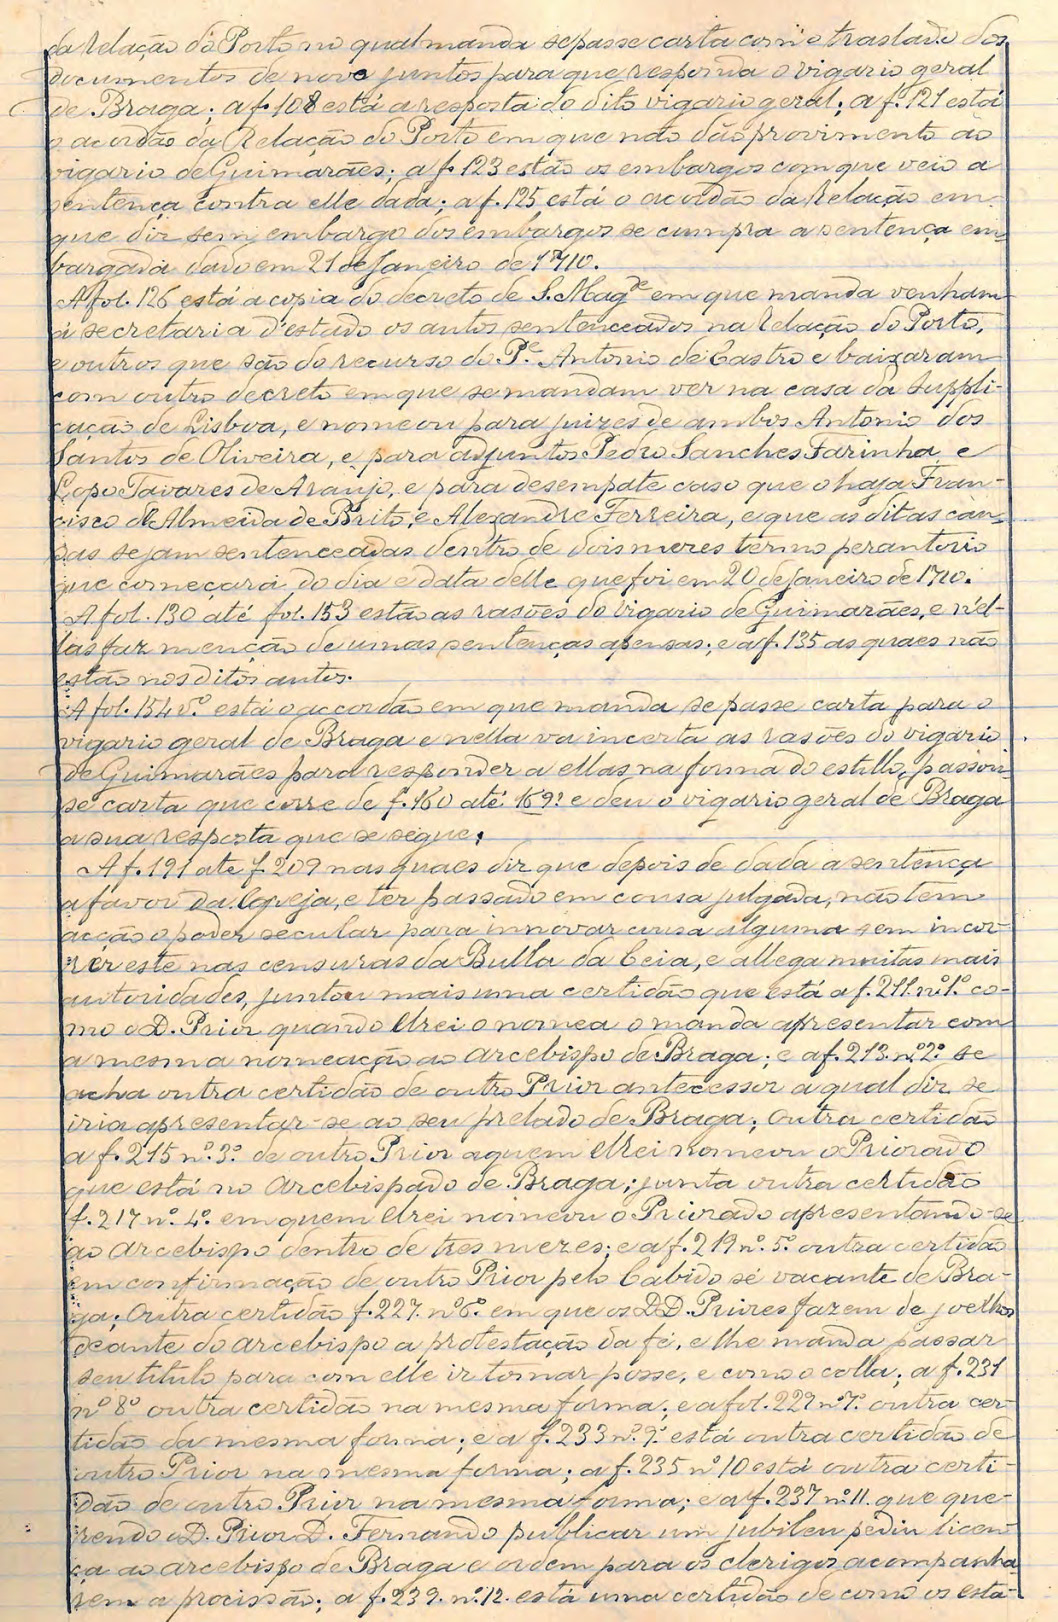 da Relação do Porto no qual manda se passe carta com o traslado dos
documentos de novo juntos para que responda o vigario geral
de Braga; a f. 108 está a resposta do dito vigario geral; a f. 121 está
o acordão da Relação do Porto em que não dão provimento ao
vigario de Guimarães; a f. 123 estão os embargos com que veio a
sentença contra elle dada; a f. 125 está o acordão da Relação em
que diz sem embargo dos embargos se cumpra a sentença em-
bargada dado em 21 de Janeiro de 1710.
A fol. 126 está a copia do decreto de S. Magde em que manda venham
á secretaria d'estado os autos sentenceados na Relação do Porto,
e outros que são do recurso do Pe. Antonio de Castro e baixaram
com outro decreto em que se mandam ver na casa da Suppli-
cação de Lisboa, e nomeou para juizes de ambos Antonio dos
Santos de Oliveira, e para adjuntos Pedro Sanches Farinha, e
Lopo Tavares de Araujo, e para desempate caso que o haja Fran-
cisco d'Almeida de Brito, e Alexandre Ferreira, e que as ditas cau-
sas sejam sentenceadas dentro de dois mezes termo perantorio
que começará do dia e data delle que foi em 20 de Janeiro de 1710.
A fol. 130 até fol. 153 estão as rasões do vigario de Guimarães, e n'el-
las faz menção de umas sentenças apensas; e a f. 135 as quaes não
estão nos ditos autos.
A fol. 154 v.º está o accordão em que manda se passe carta para o
vigario geral de Braga e nella vá incerta as rasões do vigario
de Guimarães para responder a ellas na forma do estillo, passou-
se carta que corre de f. 160 até 169: e deu o vigario geral de Braga
a sua resposta que se segue,
A f. 191 ate f. 209 nas quaes diz que depois de dada a sentença
a favor da Igreja, e ter passado em cousa julgada, não tem
acção o poder secular para innovar cousa alguma sem incor-
rer este nas censuras da Bulla da Ceia, e allega muitas mais
autoridades, juntou mais uma certidão que está a f. 211. nº 1º. co-
mo o D. Prior quando Elrei o nomea o manda apresentar com
a mesma nomeação ao Arcebispo de Braga; e a f. 213. nº 2º. se
acha outra certidão de outro Prior antecessor a qual diz se
iria apresentar-se ao seu prelado de Braga; outra certidão
a f. 215 nº. 3º. de outro Prior a quem Elrei nomeou o Priorado
que está no Arcebispado de Braga; junta outra certidão
f. 217 nº. 4º. em quem Elrei nomeou o Priorado apresentando-se
ao Arcebispo dentro de tres mezes; e a f. 219 nº. 5º. outra certidão
em confirmação de outro Prior pelo Cabido sé vacante de Bra-
ga; outra certidão f. 227. nº 6º. em que os DD. Priores fazem de joelhos
deante do Arcebispo a protestação da fé, e lhe manda passar
seu titulo para com elle ir tomar posse, e como o colla; a f. 231
nº 8º outra certidão na mesma forma; e a fol. 229 nº 7º. outra cer-
tidão da mesma forma; e a f. 233 nº. 9º. está outra certidão de
outro Prior na mesma forma; a f. 235 nº 10 está outra certi-
dão de outro Prior na mesma forma; e a f. 237 nº 11. que que-
rendo o D. Prior D. Fernando publicar um jubileu pediu licen-
ça ao Arcebispo de Braga e ordem para os clerigos acompanha-
rem a procissão; a f. 239. nº 12. está uma certidão de como os está-